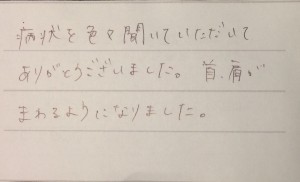 病状を色々聞いていただいて
ありがとうございました。首、肩が
まわるようになりました。